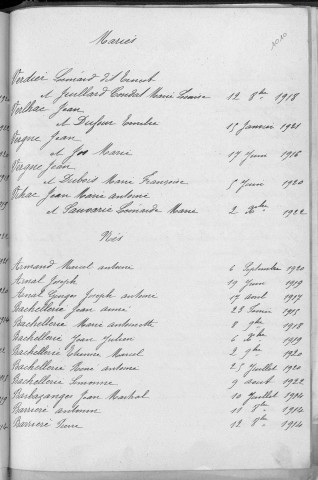 1010
Mariés
Verdier Léonard dit Ernest
et Juillard Coudert Marie Louise 12 8bre 1918
Verlhac Jean
et Dufour Emilie 15 Janvier 1921
Vergne Jean
et Jos Marie 17 Juin 1916
Vergne Jean
et Dubois Marie Françoise 5 Juin 1920
Vilhac Jean Marie antoine
et Sauvarie Léonarde Marie 2 Xbre 1922
Nés
Armand Marcel antoine 6 Septembre 1920
Arnal Joseph 19 Juin 1919
Arnal Georges Joseph antoine 17 aout 1917
Bachellerie Jean aimé 23 Février 1915
Bachellerie Marie antoinette 8 9bre 1918
Bachellerie Jean Julien 6 Xbre 1919
Bachellerie Etienne Marcel 2 9bre 1920
Bachellerie René antoine 25 Juillet 1920
Bachellerie Simonne 9 aout 1922
Barbazanges Jean Martial 10 Juillet 1914
Barrière antoine 11 8bre 1914
Barrière Pierre 12 8bre 1914